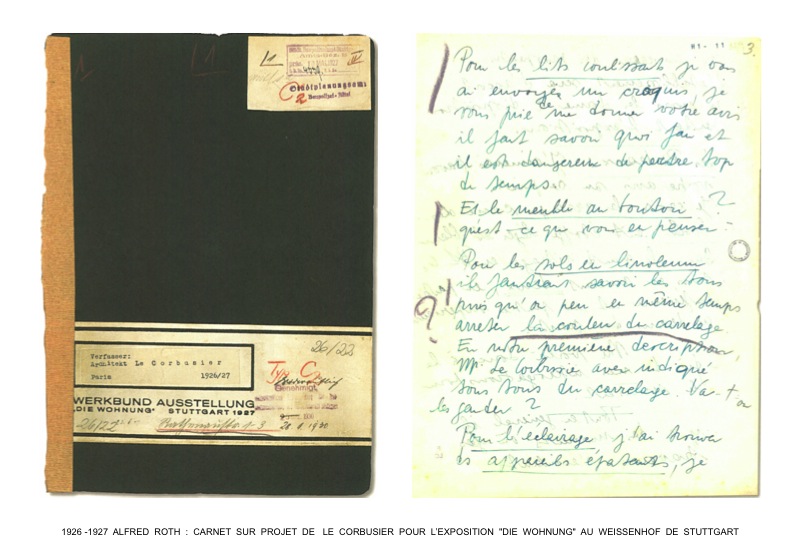 11
IV
Stadtplanungsam
2
Verfasser:
Architekt Le Corbusier
Paris 1926/27
26/22
Typ C
Genehmigt
WERKBUND AUSSTELLUNG
„DIE WOHNUNG" STUTTGART 1927
26/22
1-3 20.6.1930
3.
Pour les lits coulissant je vous
ai envoyer un craquis je
vous prie de me donner votre avis
il faut savoir quoi faire et
il est dangereux de perdre trop
de temps.
Et le meuble au bouton ?
qu'est-ce que vous en pensez -
Pour les sols en linoleum
il faudrait savoir les tons
puis qu'on peu en même temps
arreter la couleur du carrelage
En notre première description,
Mr Le Corbusier avez indiqué
tous tons du carrelage. Va-t-on
les garder ?
Pour l'eclairage j'ai trouver
des appareils épatants, je
1926 -1927 ALFRED ROTH : CARNET SUR PROJET DE LE CORBUSIER POUR L'EXPOSITION "DIE WOHNUNG" AU WEISSENHOF DE STUTTGART